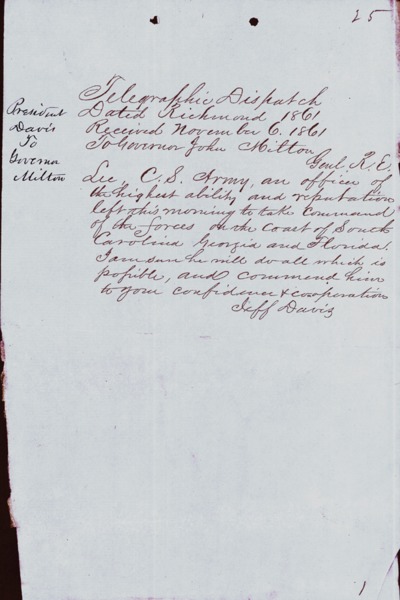 25
President
Davis
To
Governor
Milton
Telegraphic Dispatch
Dated Richmond 1861
Received November 6. 1861
To Governor John Milton
Genl R. E.
Lee, C. S. Army, an officer of
the highest ability and reputation
left this morning to take command
of the forces on the Coast of South
Carolina Georgia and Florida.
I am sure he will do all which is
possible, and commend him
to your confidence & cooperation
Jeff Davis
1